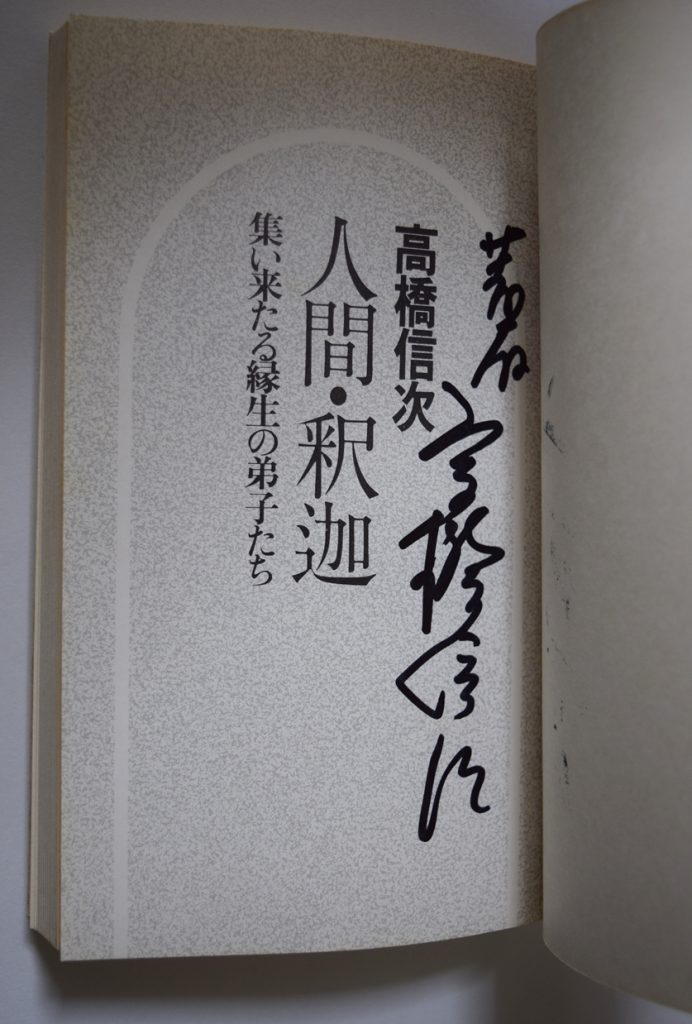 著者
高橋信次
高橋信次
人間・釈迦
集い来たる縁生の弟子たち